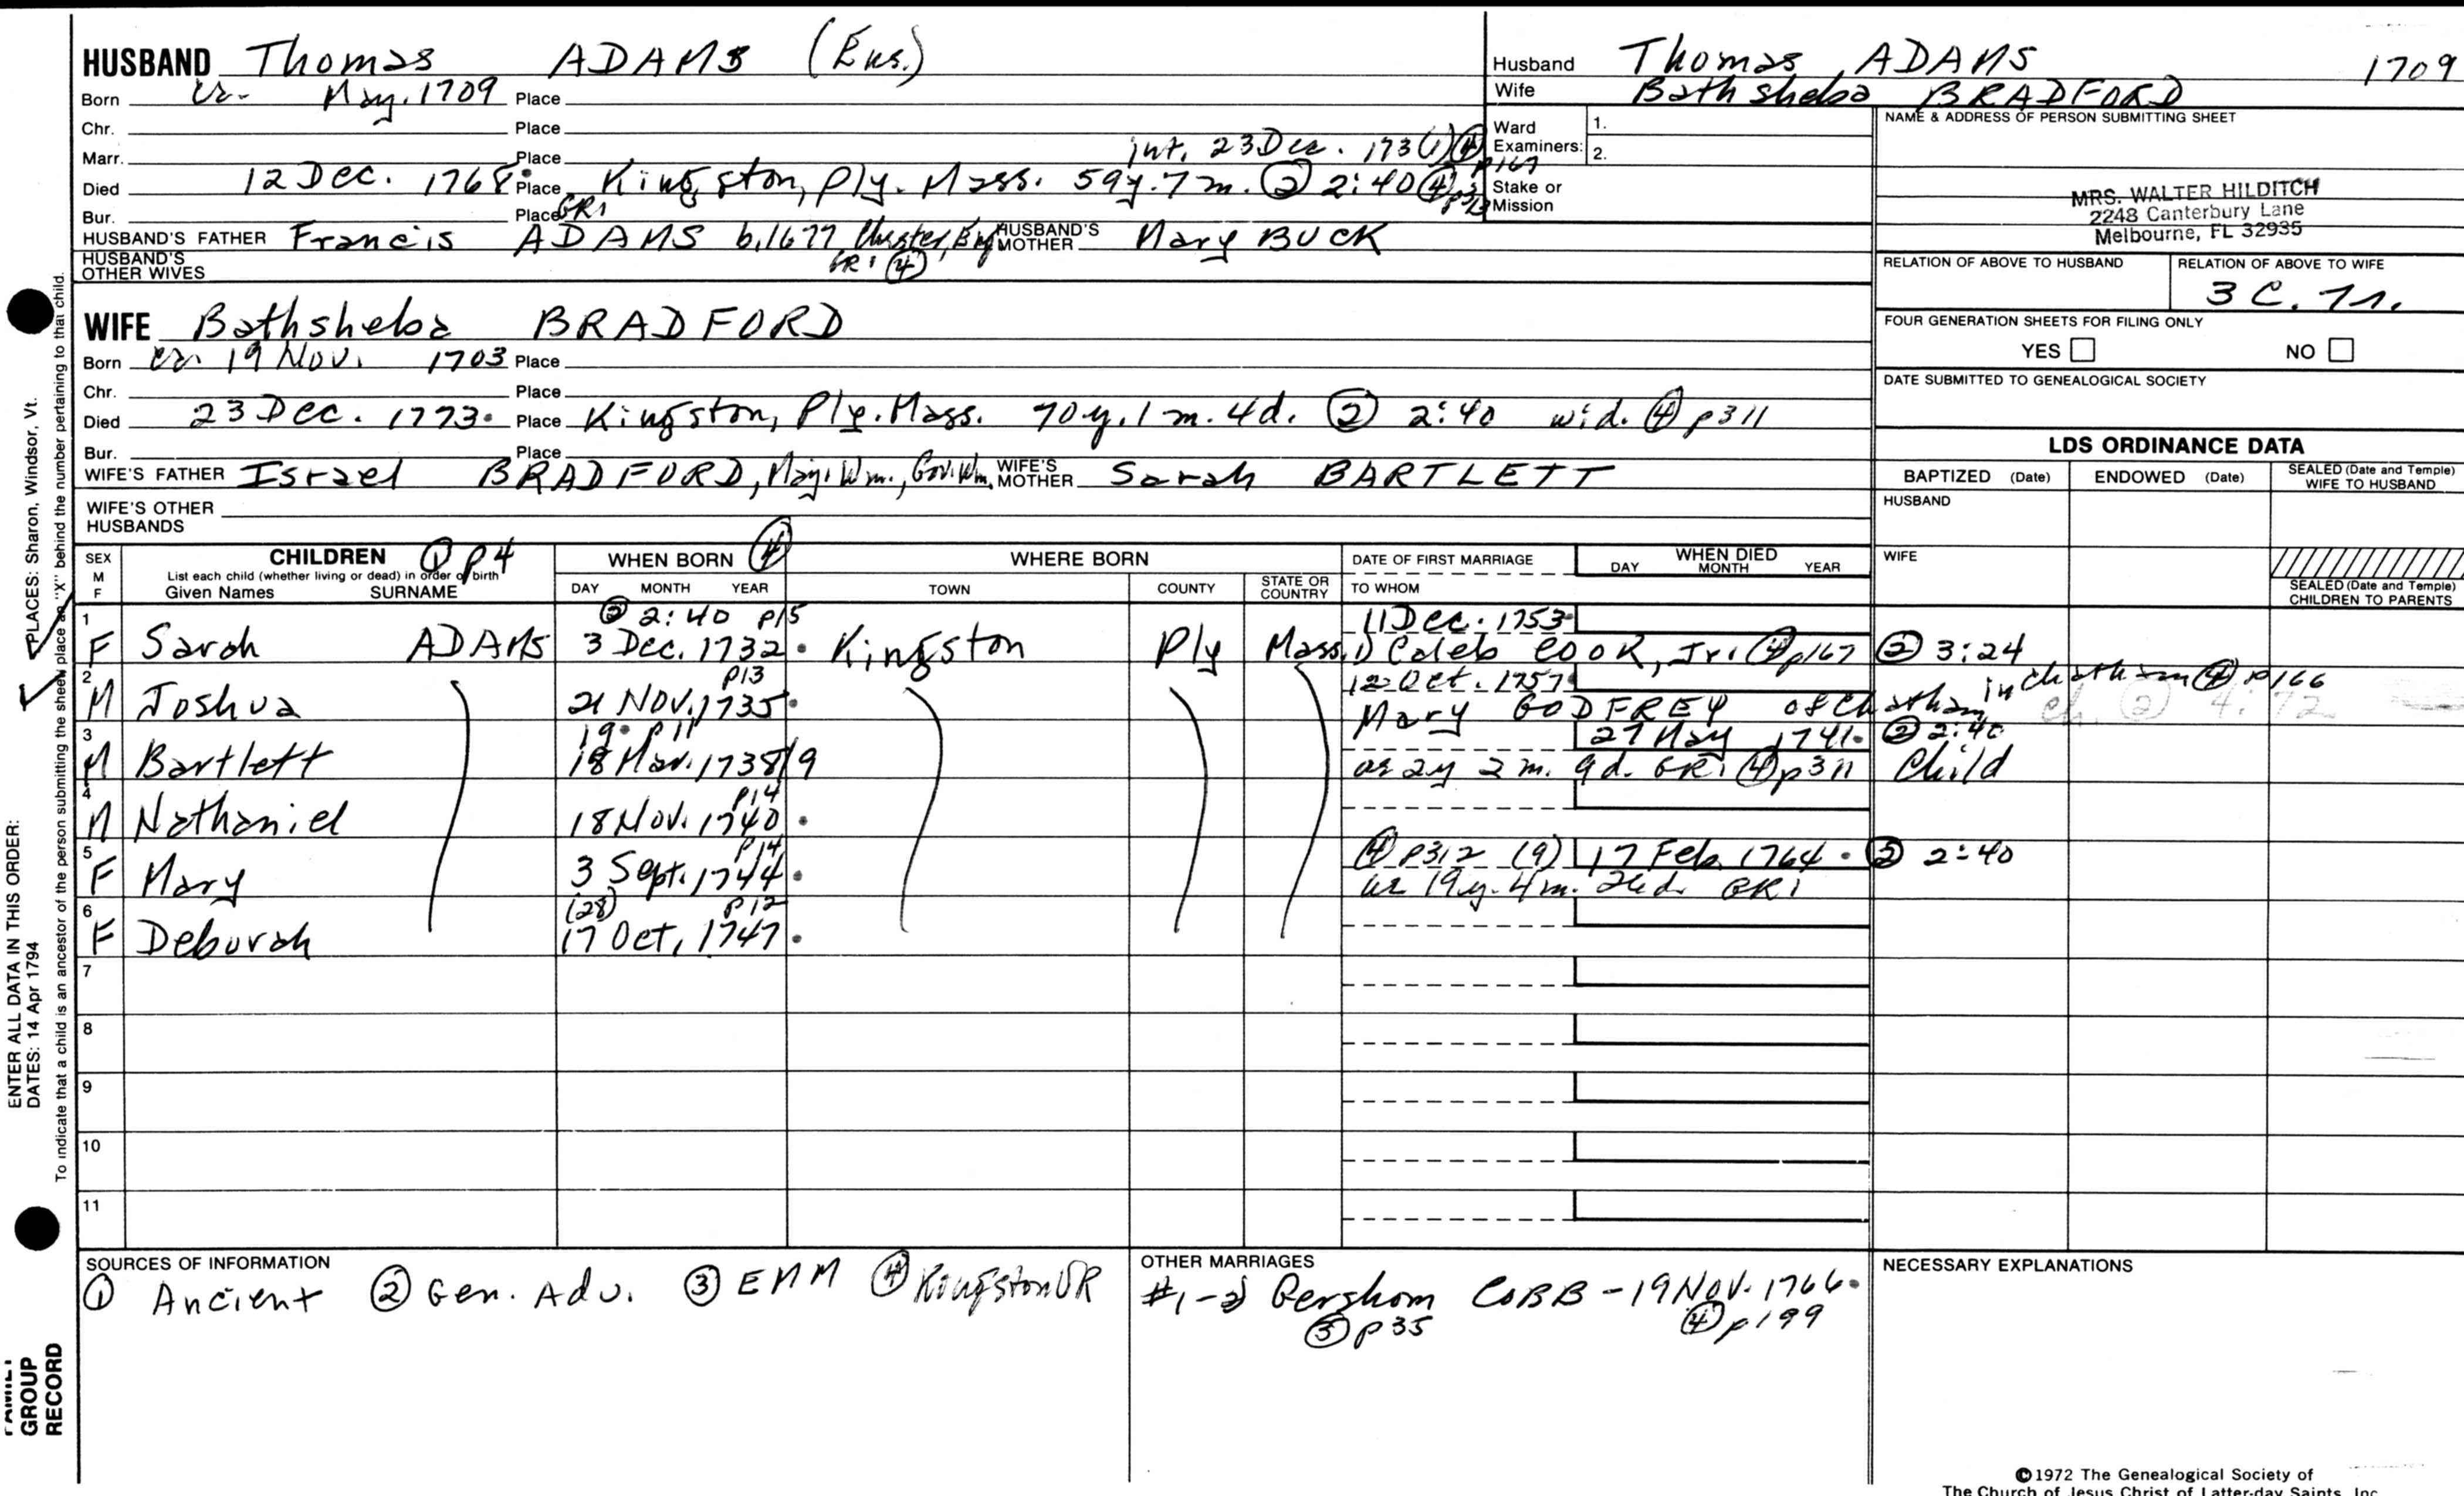 HUSBAND Thomas ADAMS (Ens.)
Born ca. May. 1709 Place
Chr. Place
Marr. Place int. 23 Dec. 173(1) ④ p167
Died 12 Dec. 1768. Place Kingston, Ply. Mass. 59y. 7m. ② 2:40 ④
Bur. Place GR1
HUSBAND'S FATHER Francis ADAMS b. 1677 Chester, Eng HUSBAND'S MOTHER Mary BUCK
HUSBAND'S OTHER WIVES GR1 ④
Husband Thomas ADAMS 1709
Wife Bathsheba BRADFORD
Ward Examiners: 1.
2.
Stake or Mission
NAME & ADDRESS OF PERSON SUBMITTING SHEET
MRS. WALTER HILDITCH
2248 Canterbury Lane
Melbourne, FL 32935
RELATION OF ABOVE TO HUSBAND RELATION OF ABOVE TO WIFE
3 C.
FOUR GENERATION SHEETS FOR FILING ONLY
YES NO
DATE SUBMITTED TO GENEALOGICAL SOCIETY
WIFE Bathsheba BRADFORD
Born ca. 19 Nov. 1703 Place
Chr. Place
Died 23 Dec. 1773. Place Kingston, Ply. Mass. 70y. 1m. 4d. ② 2:40 wid. ④ p311
Bur. Place
WIFE'S FATHER Israel BRADFORD, Maj. Wm., Gov. Wm. WIFE'S MOTHER Sarah BARTLETT
WIFE'S OTHER HUSBANDS
LDS ORDINANCE DATA
BAPTIZED (Date) ENDOWED (Date) SEALED (Date and Temple) WIFE TO HUSBAND
HUSBAND
WIFE
SEALED (Date and Temple) CHILDREN TO PARENTS
SEX M F
CHILDREN ① p4
List each child (whether living or dead) in order of birth
Given Names SURNAME
WHEN BORN ④
DAY MONTH YEAR
WHERE BORN
TOWN COUNTY STATE OR COUNTRY
DATE OF FIRST MARRIAGE
TO WHOM
WHEN DIED
DAY MONTH YEAR
② 2:40 p15 11 Dec. 1753.
1 F Sarah ADAMS 3 Dec. 1732. Kingston Ply Mass. 1) Caleb COOK, Jr. ④ p167 ② 3:24
p13 12 Oct. 1757
2 M Joshua 21 Nov. 1735. Mary GODFREY of Chatham, in Chatham ④ p166
ch. ② 4:72
19. p11 27 May 1741. ② 2:40
3 M Bartlett 18 Mar. 1738/9 ae 2y 2m. 9d. GR1 ④ p311 Child
p14
4 M Nathaniel 18 Nov. 1740.
p14 ④ p312 (9) 17 Feb. 1764. ② 2:40
5 F Mary 3 Sept. 1744. ae 19y. 4m. GR1
(28) p12
6 F Deborah 17 Oct. 1747.
7
8
9
10
11
SOURCES OF INFORMATION
① Ancient ② Gen. Adv. ③ EMM ④ Kingston VR
OTHER MARRIAGES
#1-2) Gershom COBB - 19 Nov. 1766.
③ p35 ④ p199
NECESSARY EXPLANATIONS
©1972 The Genealogical Society of
The Church of Jesus Christ of Latter-day Saints, Inc.
PLACES: Sharon, Windsor, Vt.
ENTER ALL DATA IN THIS ORDER:
DATES: 14 Apr 1794
To indicate that a child is an ancestor of the person submitting the sheet, place an "X" behind the number pertaining to that child.
FAMILY GROUP RECORD